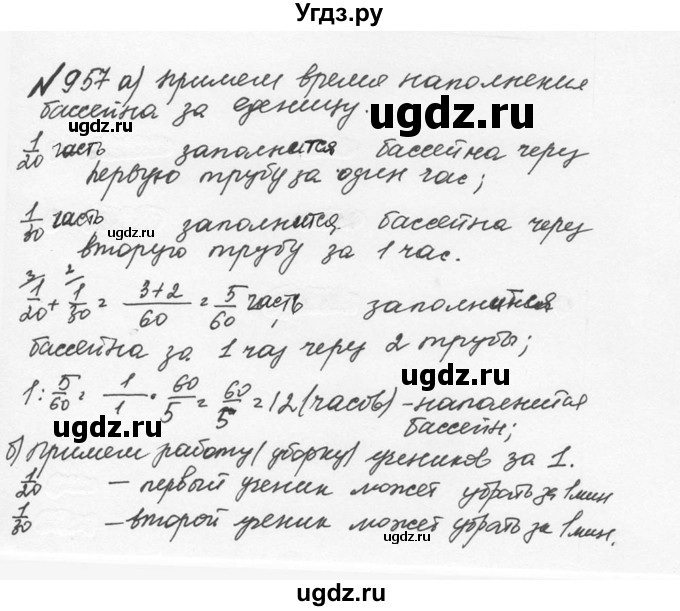 Угдз.ру
№957 а) примем время наполнения
бассейна за еденицу.
ugdz.ru
1/20 часть заполнится бассейна через
первую трубу за один час;
1/30 часть заполнится бассейна через
вторую трубу за 1 час.
3 2
1/20 + 1/30 = 3+2/60 = 5/60 часть заполнится
ugdz.ru
бассейна за 1 час через 2 трубы;
ugdz.ru
1 : 5/60 = 1/1 · 60/5 = 60/5 = 12 (часов) - наполнится
бассейн;
ugdz.ru
б) Примем работу (уборку) учеников за 1.
1/20 — первый ученик может убрать за 1 мин
1/30 — второй ученик может убрать за 1 мин.
ugdz.ru
ugdz.ru